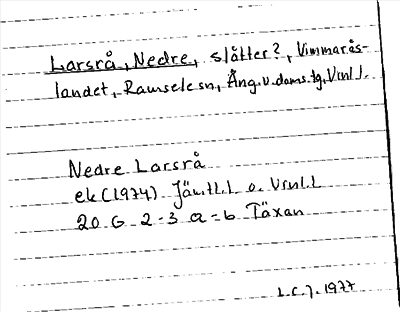 Larsrå, Nedre, slåtter?, Vimmarås-
landet, Ramsele sn, Ång.v.doms.tg, Vnl l.
Nedre Larsrå
ek (1974) Jämtl.l o. Vsnl.l
20 G 2-3 a-b Täxan
L.C.J. 1977